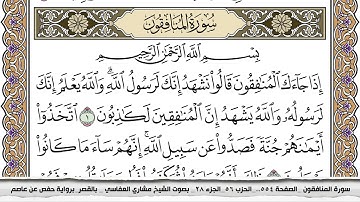 سُورَةُ المُنَافِقُونَ
بِسْمِ اللَّهِ الرَّحْمَٰنِ الرَّحِيمِ
إِذَا جَاءَكَ الْمُنَافِقُونَ قَالُوا نَشْهَدُ إِنَّكَ لَرَسُولُ اللَّهِ ۗ وَاللَّهُ يَعْلَمُ إِنَّكَ
لَرَسُولُهُ وَاللَّهُ يَشْهَدُ إِنَّ الْمُنَافِقِينَ لَكَاذِبُونَ ١ اتَّخَذُوا
أَيْمَانَهُمْ جُنَّةً فَصَدُّوا عَن سَبِيلِ اللَّهِ ۚ إِنَّهُمْ سَاءَ مَا كَانُوا
سورة المنافقون الصفحة ٥٥٤.. الحزب ٥٦ الجزء ٢٨ .. بصوت الشيخ مشاري العفاسي .. بالقصر برواية حفص عن عاصم